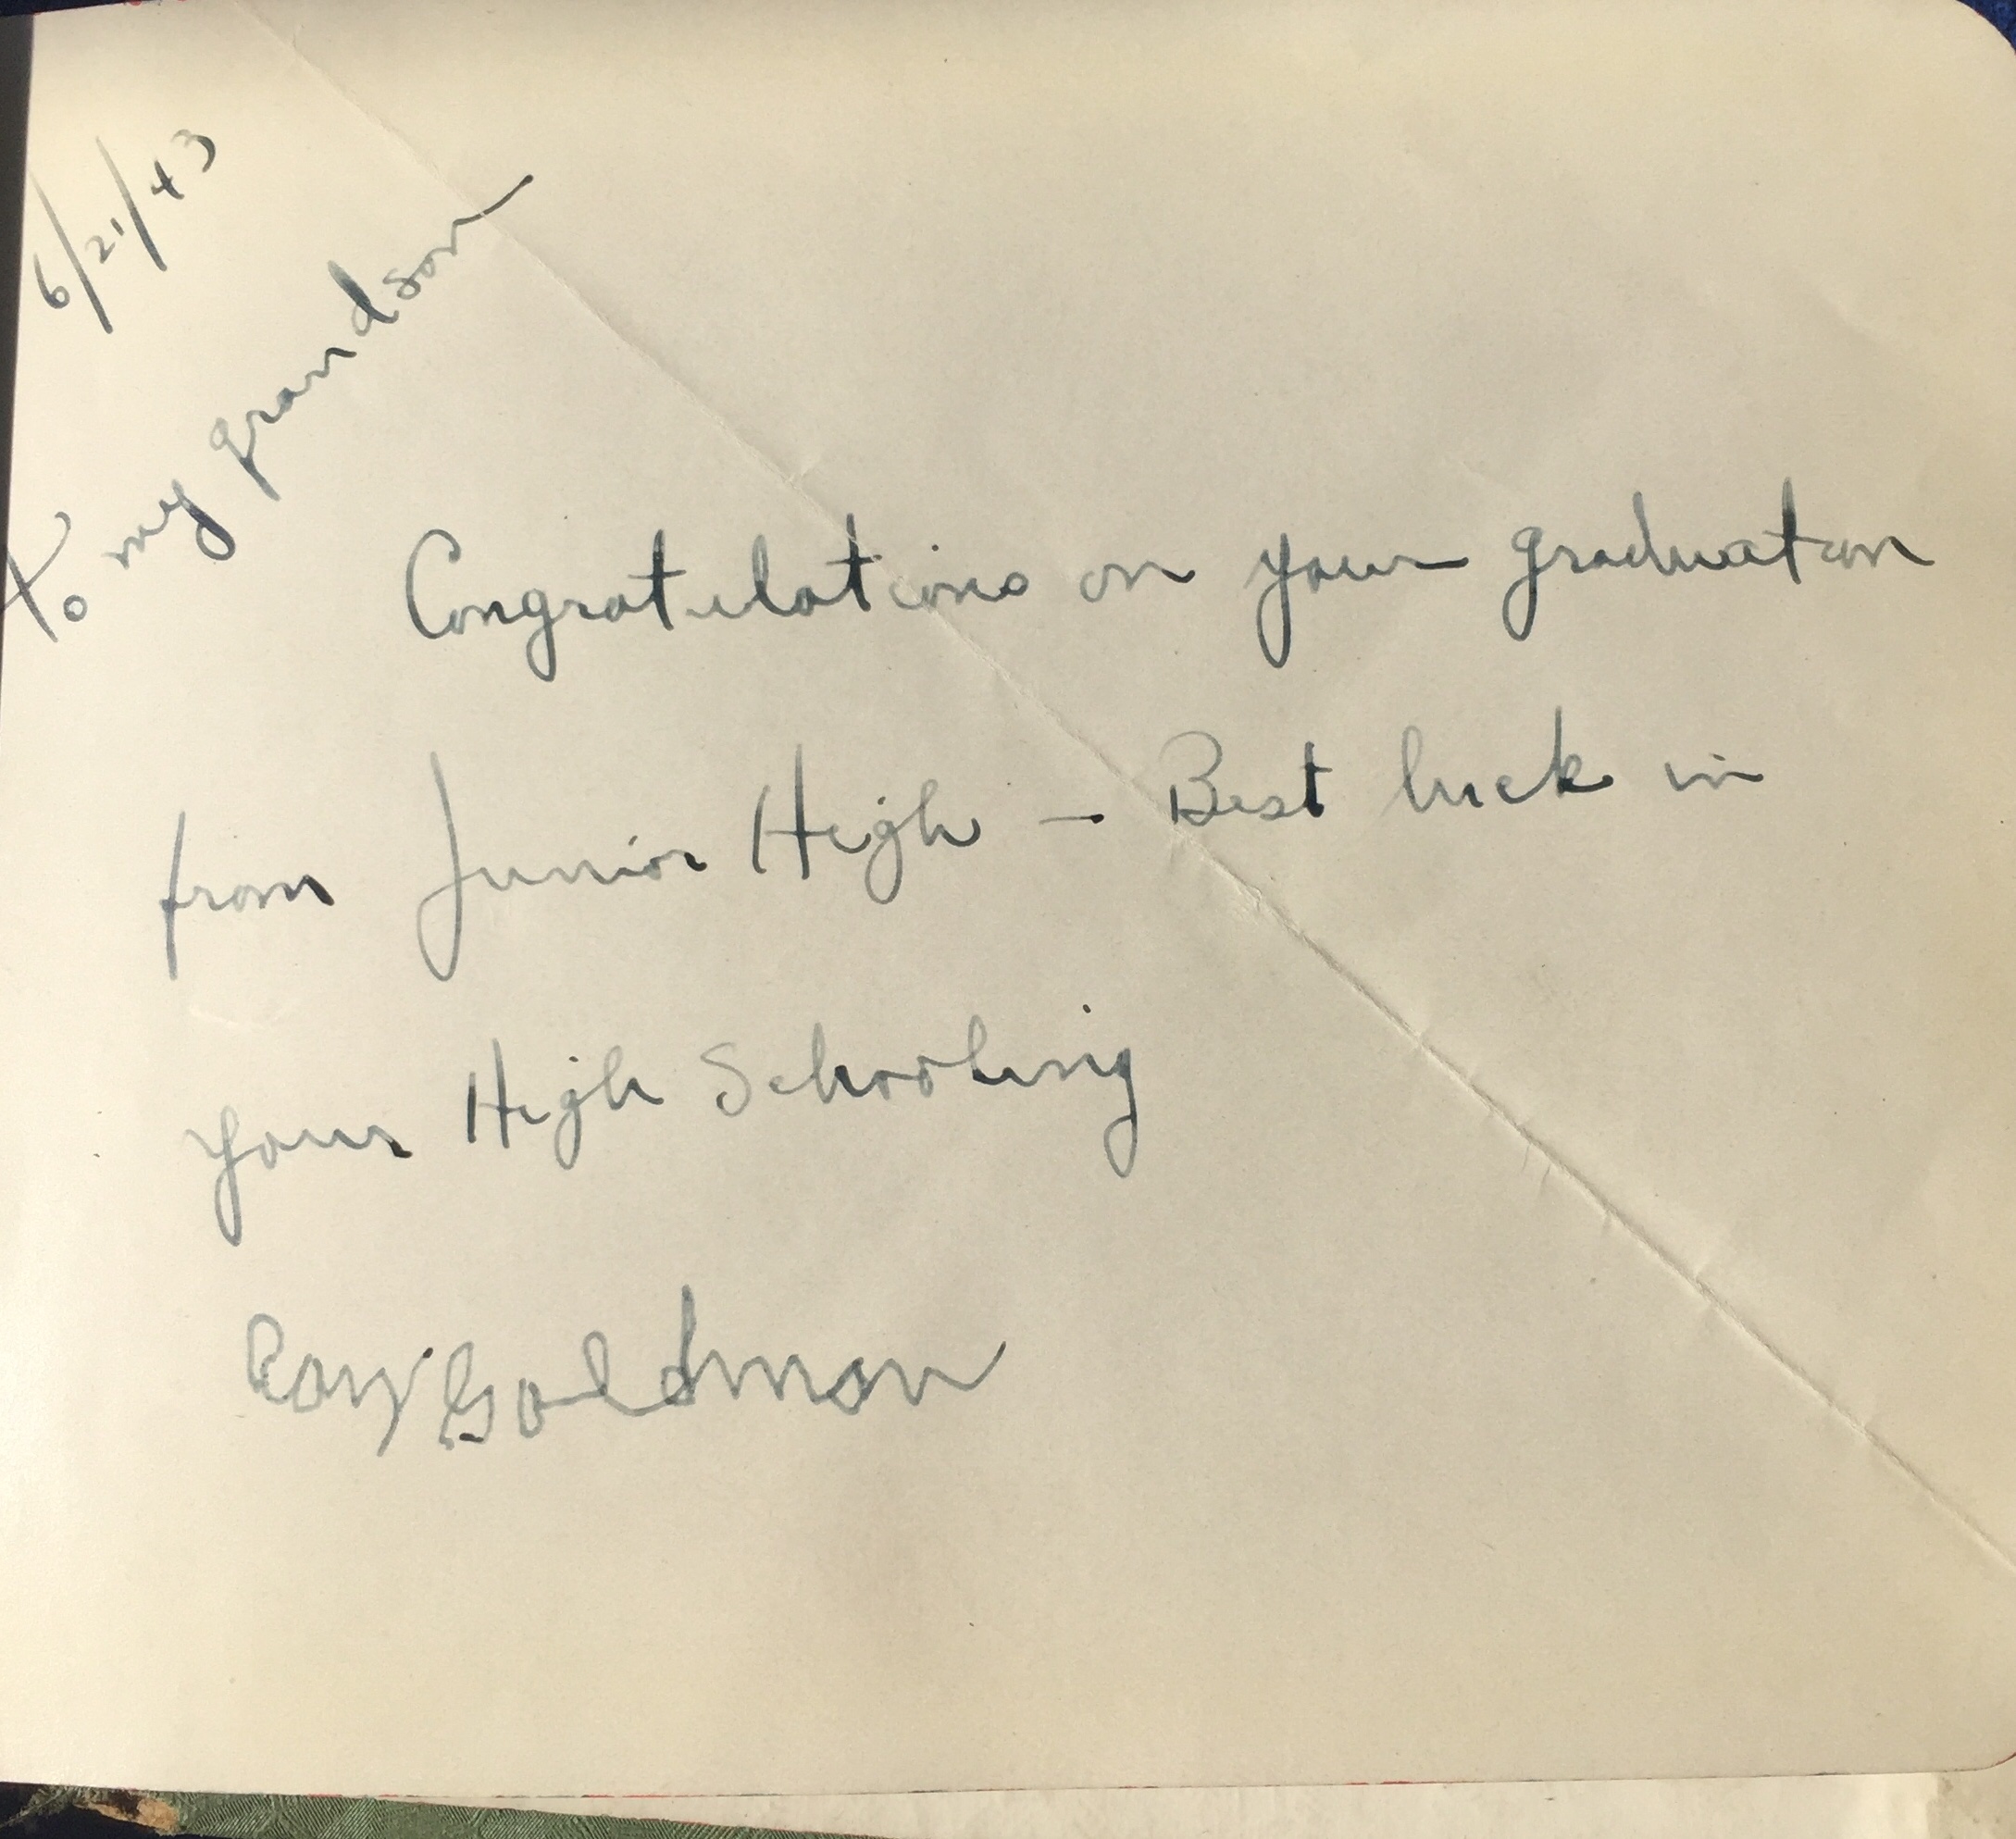 6/21/43
To my grandson
Congratulations on your graduation
from Junior High - Best luck in
your High Schooling
Goldman